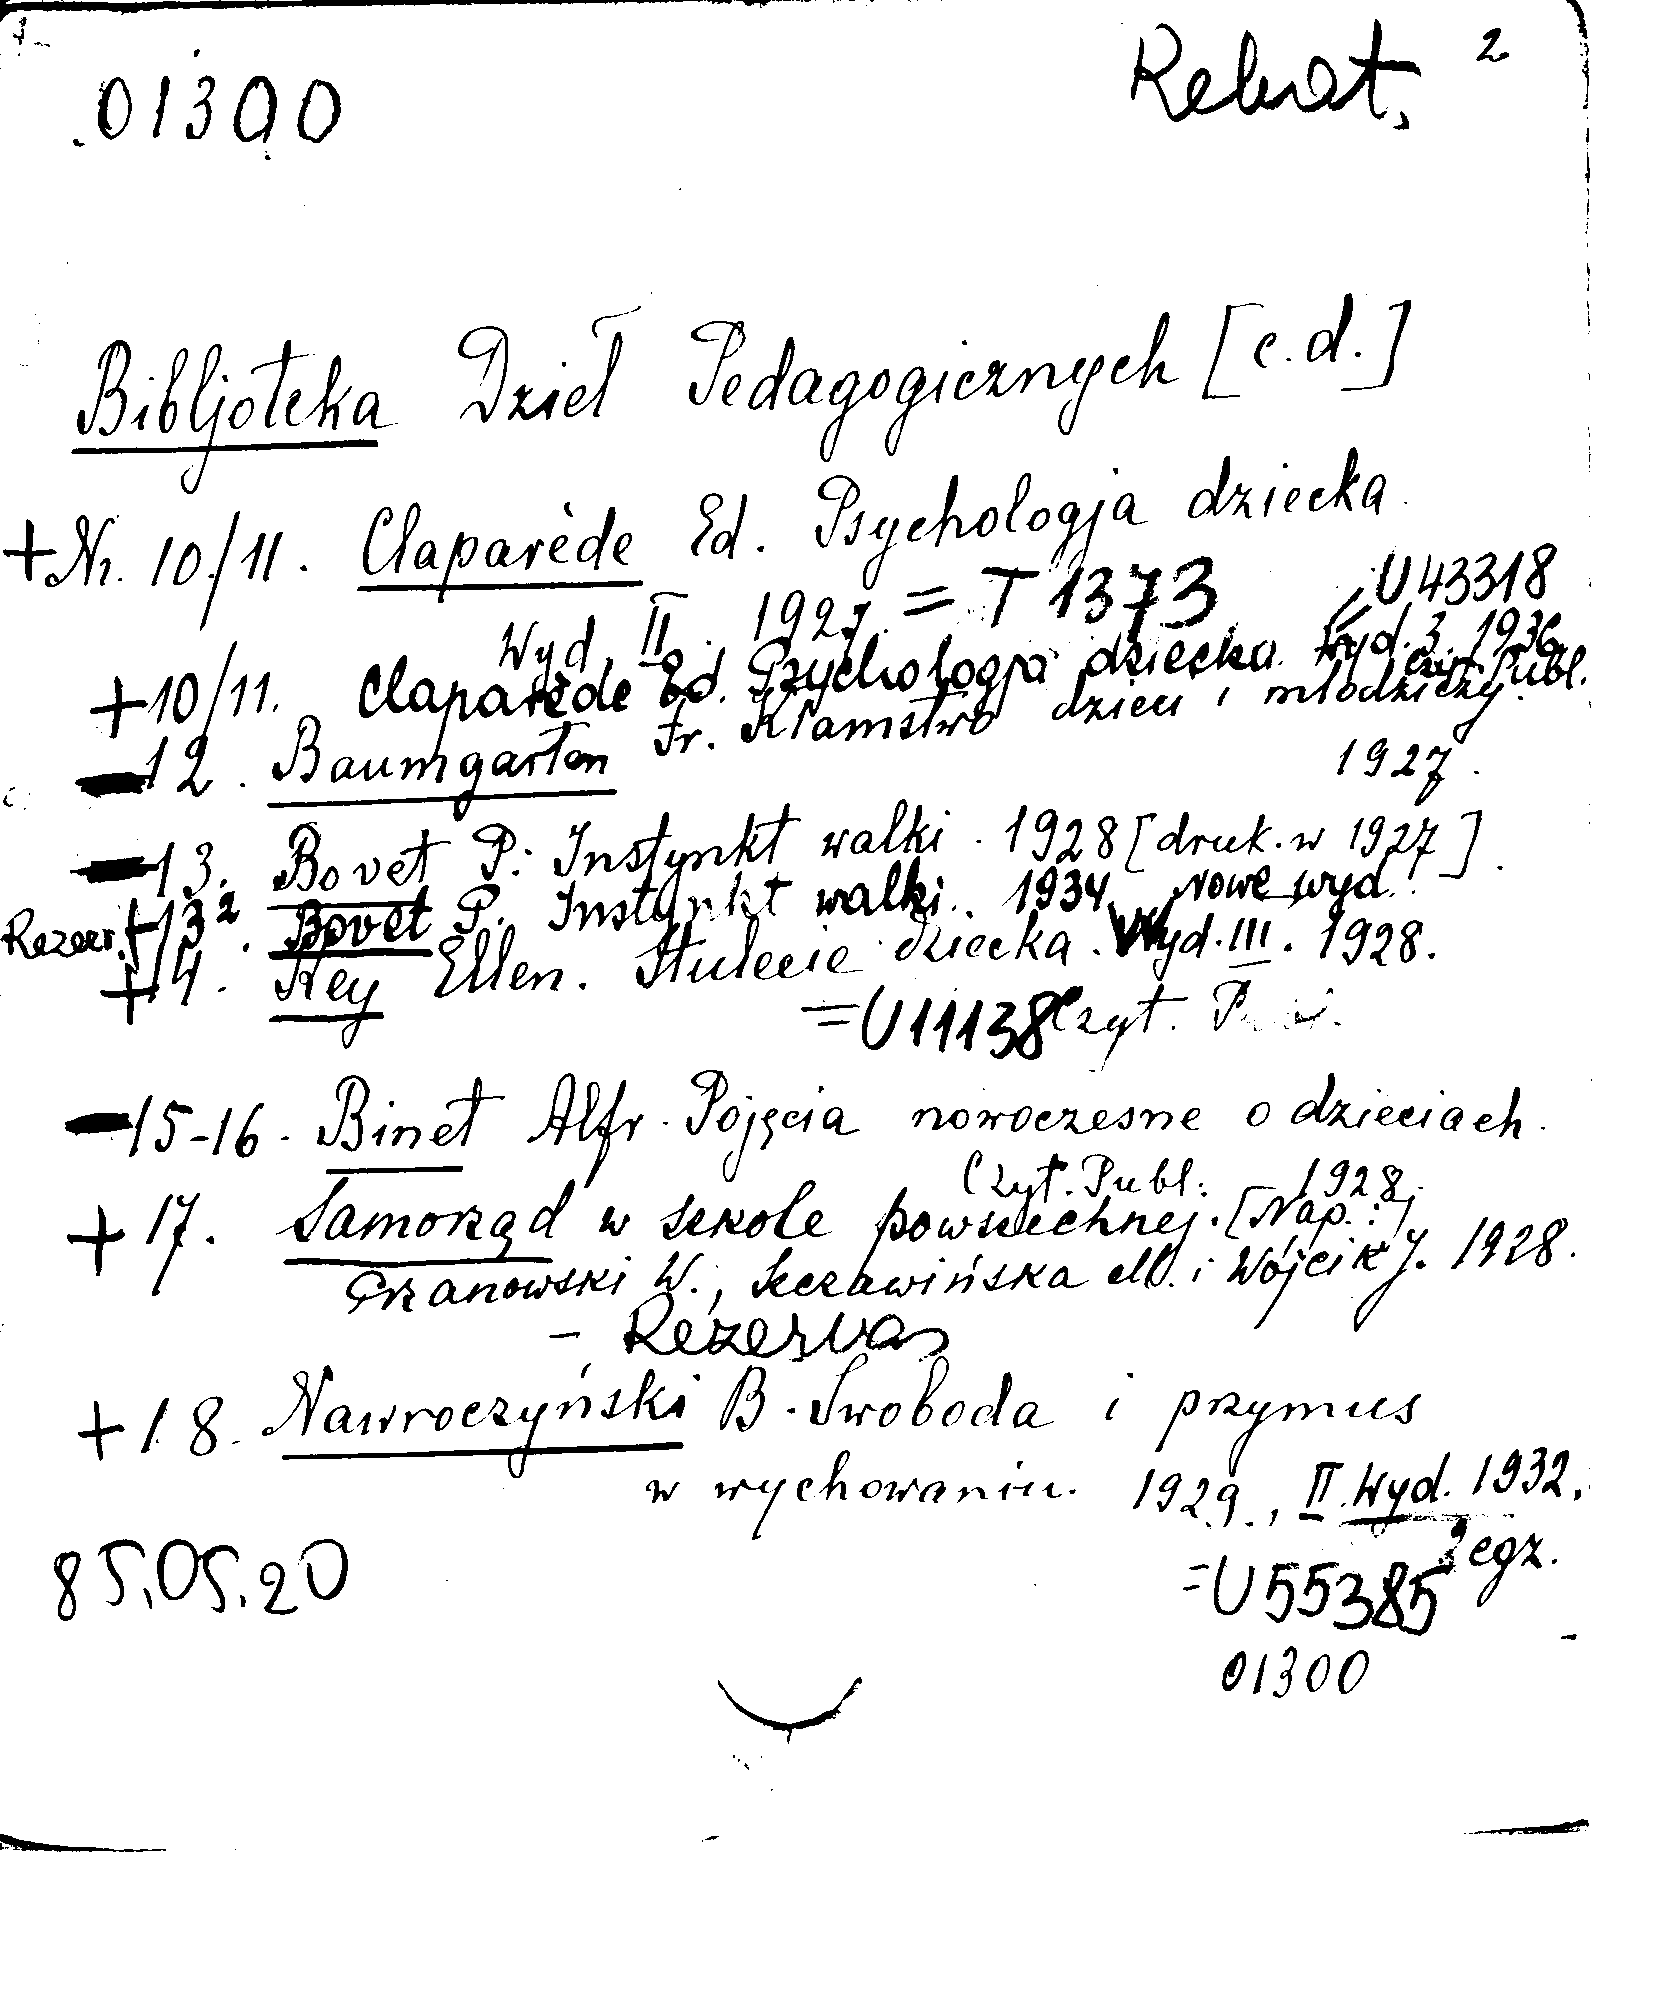 01300 2
Bibljoteka Dzieł Pedagogicznych [c.d.]
+ Nr. 10/11. Claparède Ed. Psychologja dziecka
Wyd. II. 1927. = T 1373 = U 43318
+ 10/11. Claparède Ed. Psychologja dziecka. Wyd. 3. 1936
Czyt. Publ.
- 12. Baumgarten Fr. Kłamstwo dzieci i młodzieży.
1927.
- 13. Bovet P. Instynkt walki. 1928 [druk. w 1927].
Rezerw. + 13². Bovet P. Instynkt walki. 1934. Nowe wyd.
+ 14. Key Ellen. Stulecie dziecka. Wyd. III. 1928.
= U 11138 Czyt.
- 15-16. Binet Alfr. Pojęcia nowoczesne o dzieciach.
Czyt. Publ. 1928.
+ 17. Samorząd w szkole powszechnej. [Nap.:]
Grzanowski W., Szczawińska M. i Wójcik J. 1928.
- Rezerwa
+ 18. Nawroczyński B. Swoboda i przymus
w wychowaniu. 1929., II. Wyd. 1932.
2 egz.
85.05.20 = U 55385
01300